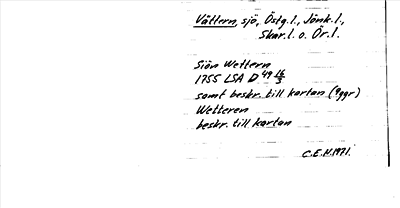 Vättern, sjö, Östg.l., Jönk.l.,
Skar.l. o. Ör.l.
Siön Wettern
1755 LSA D 49 16/3
samt beskr. till kartan (9ggr)
Wetteren
beskr. till kartan
C.E.H. 1971.